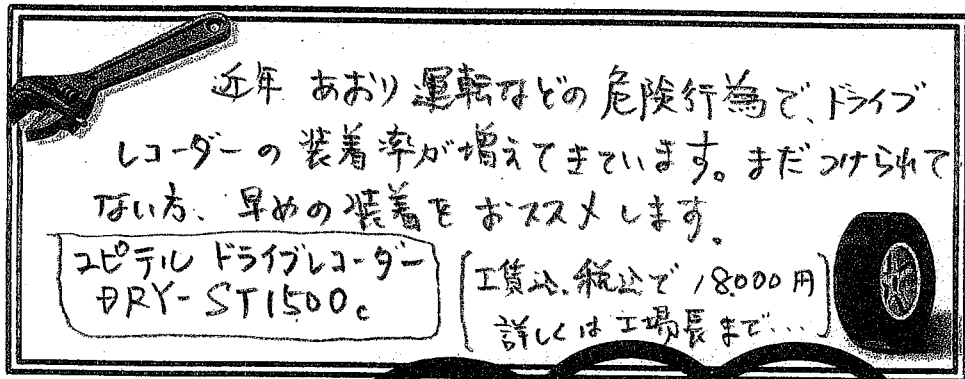 近年 あおり運転などの危険行為で、ドライブ
レコーダーの装着率が増えてきています。まだつけられて
ない方、早めの装着をおススメします。
ユピテル ドライブレコーダー
DRY-ST1500c
工賃込、税込で 18000円
詳しくは工場長まで…